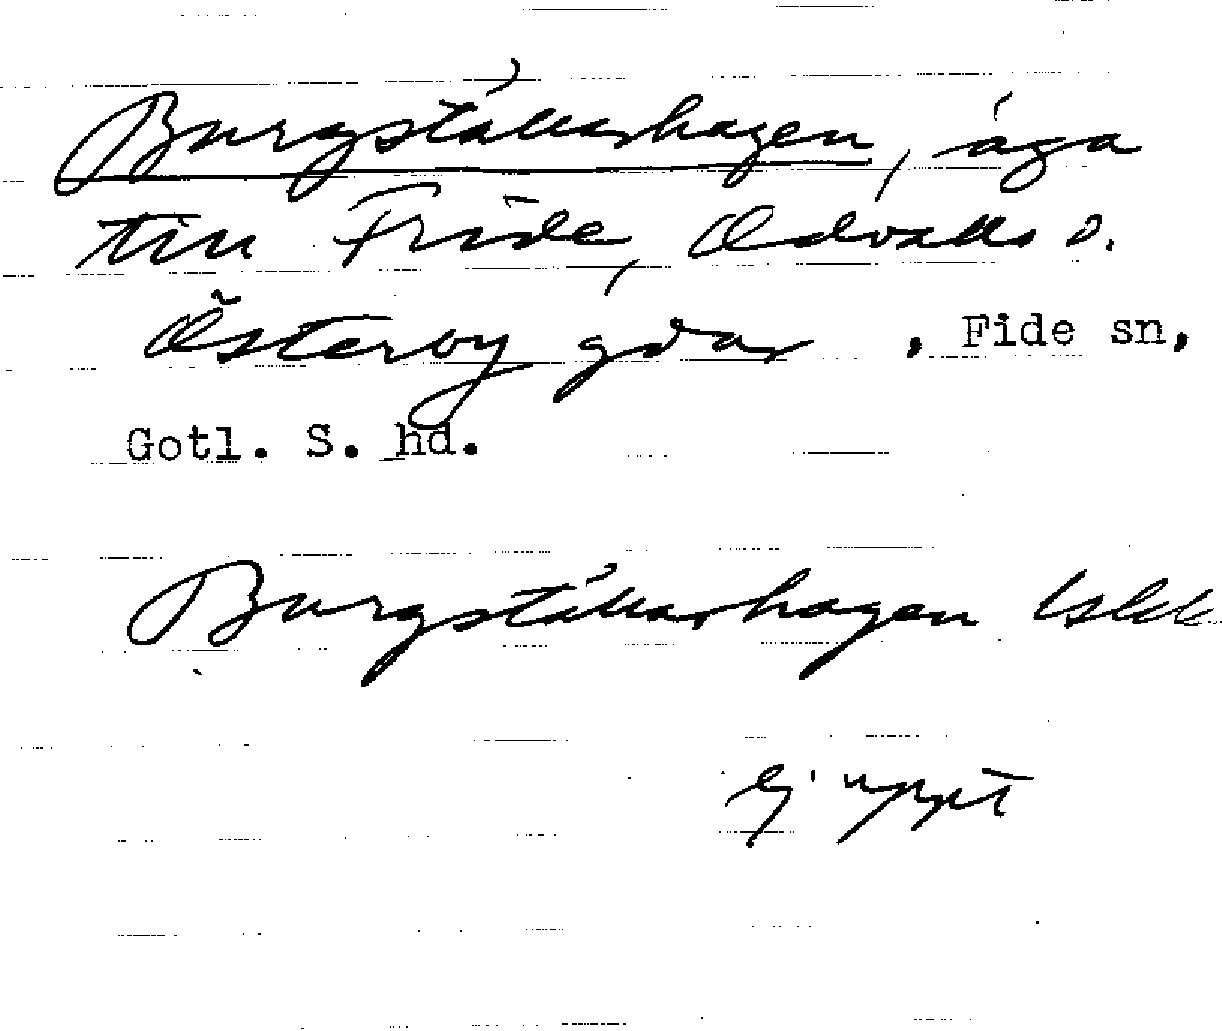 Burgställarhagen, äga
till Fride, Odvalls o.
Österby gdar , Fide sn,
Gotl. S. hd.
Burgställarhagen
ej uppt